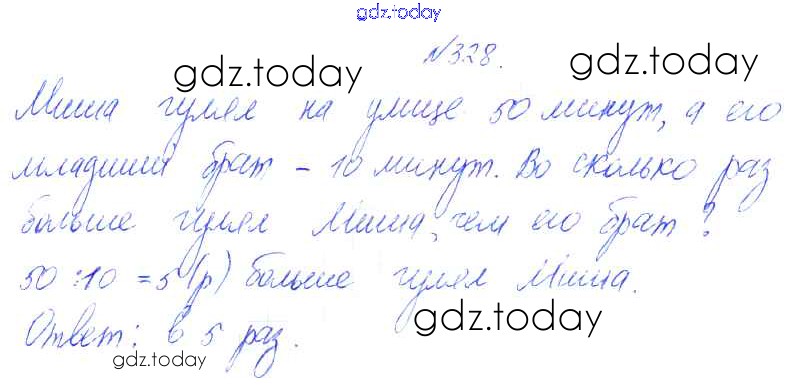 gdz.today
№328.
gdz.today gdz.today
Миша гулял на улице 50 минут, а его
младший брат - 10 минут. Во сколько раз
больше гулял Миша, чем его брат?
50 : 10 = 5 (р) больше гулял Миша.
Ответ: в 5 раз.
gdz.today
gdz.today